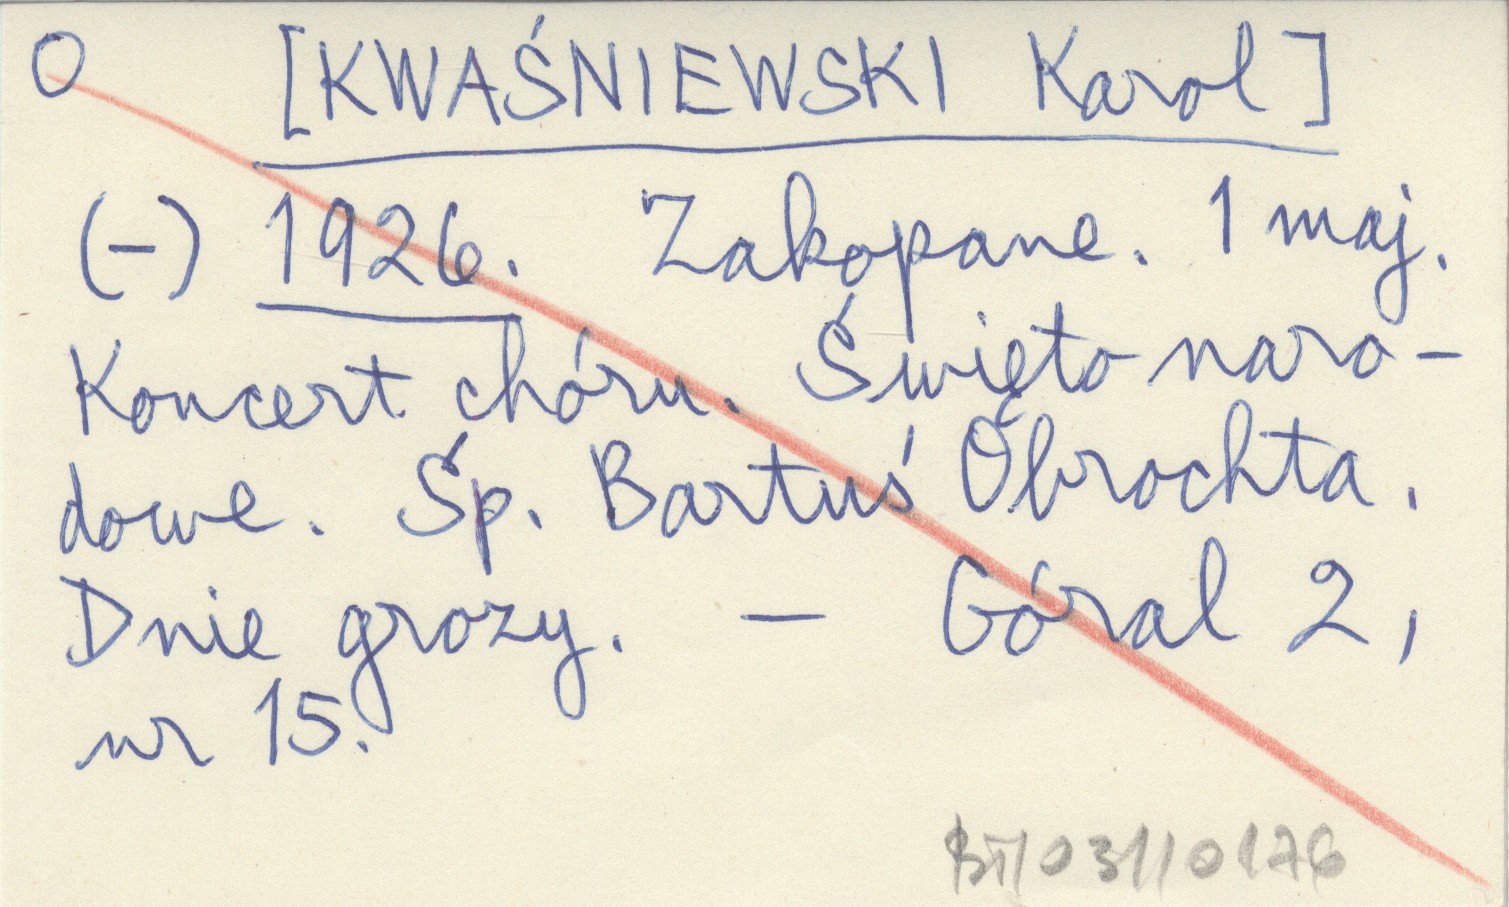 O [KWAŚNIEWSKI Karol]
(-) 1926. Zakopane. 1 maj.
Koncert chóru. Święto naro-
dowe. Śp. Bartuś Obrochta.
Dnie grozy. — Góral 2,
nr 15.
BTT/031/0176